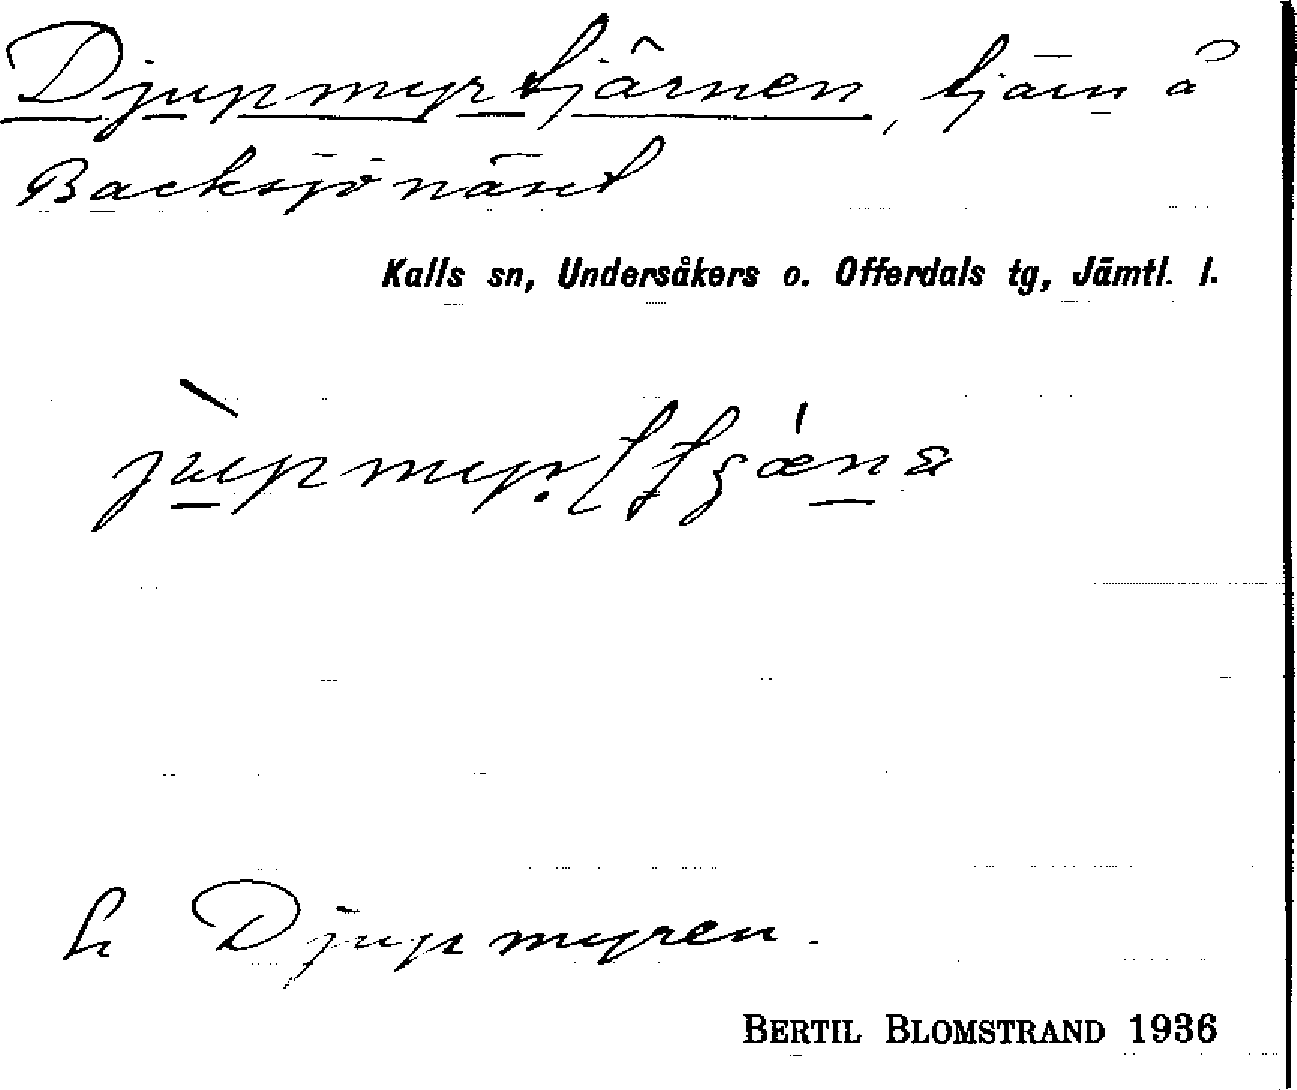 Djupmyrtjärnen, tjärn å
Backsjönäset
Kalls sn, Undersåkers o. Offerdals tg, Jämtl. l.
Djupmyren.
BERTIL BLOMSTRAND 1936